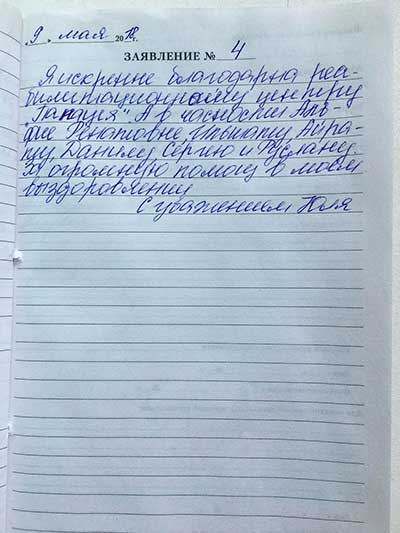 „9" мая 2018 г.
ЗАЯВЛЕНИЕ № 4
Я искренне благодарна реа-
билитационному центру
А в часности
Ренатовне, Ильшату, Айра-
ту, Данилу, Сергею и Руслану.
За огромную помощь в моём
выздоровлении
С уважением Юля